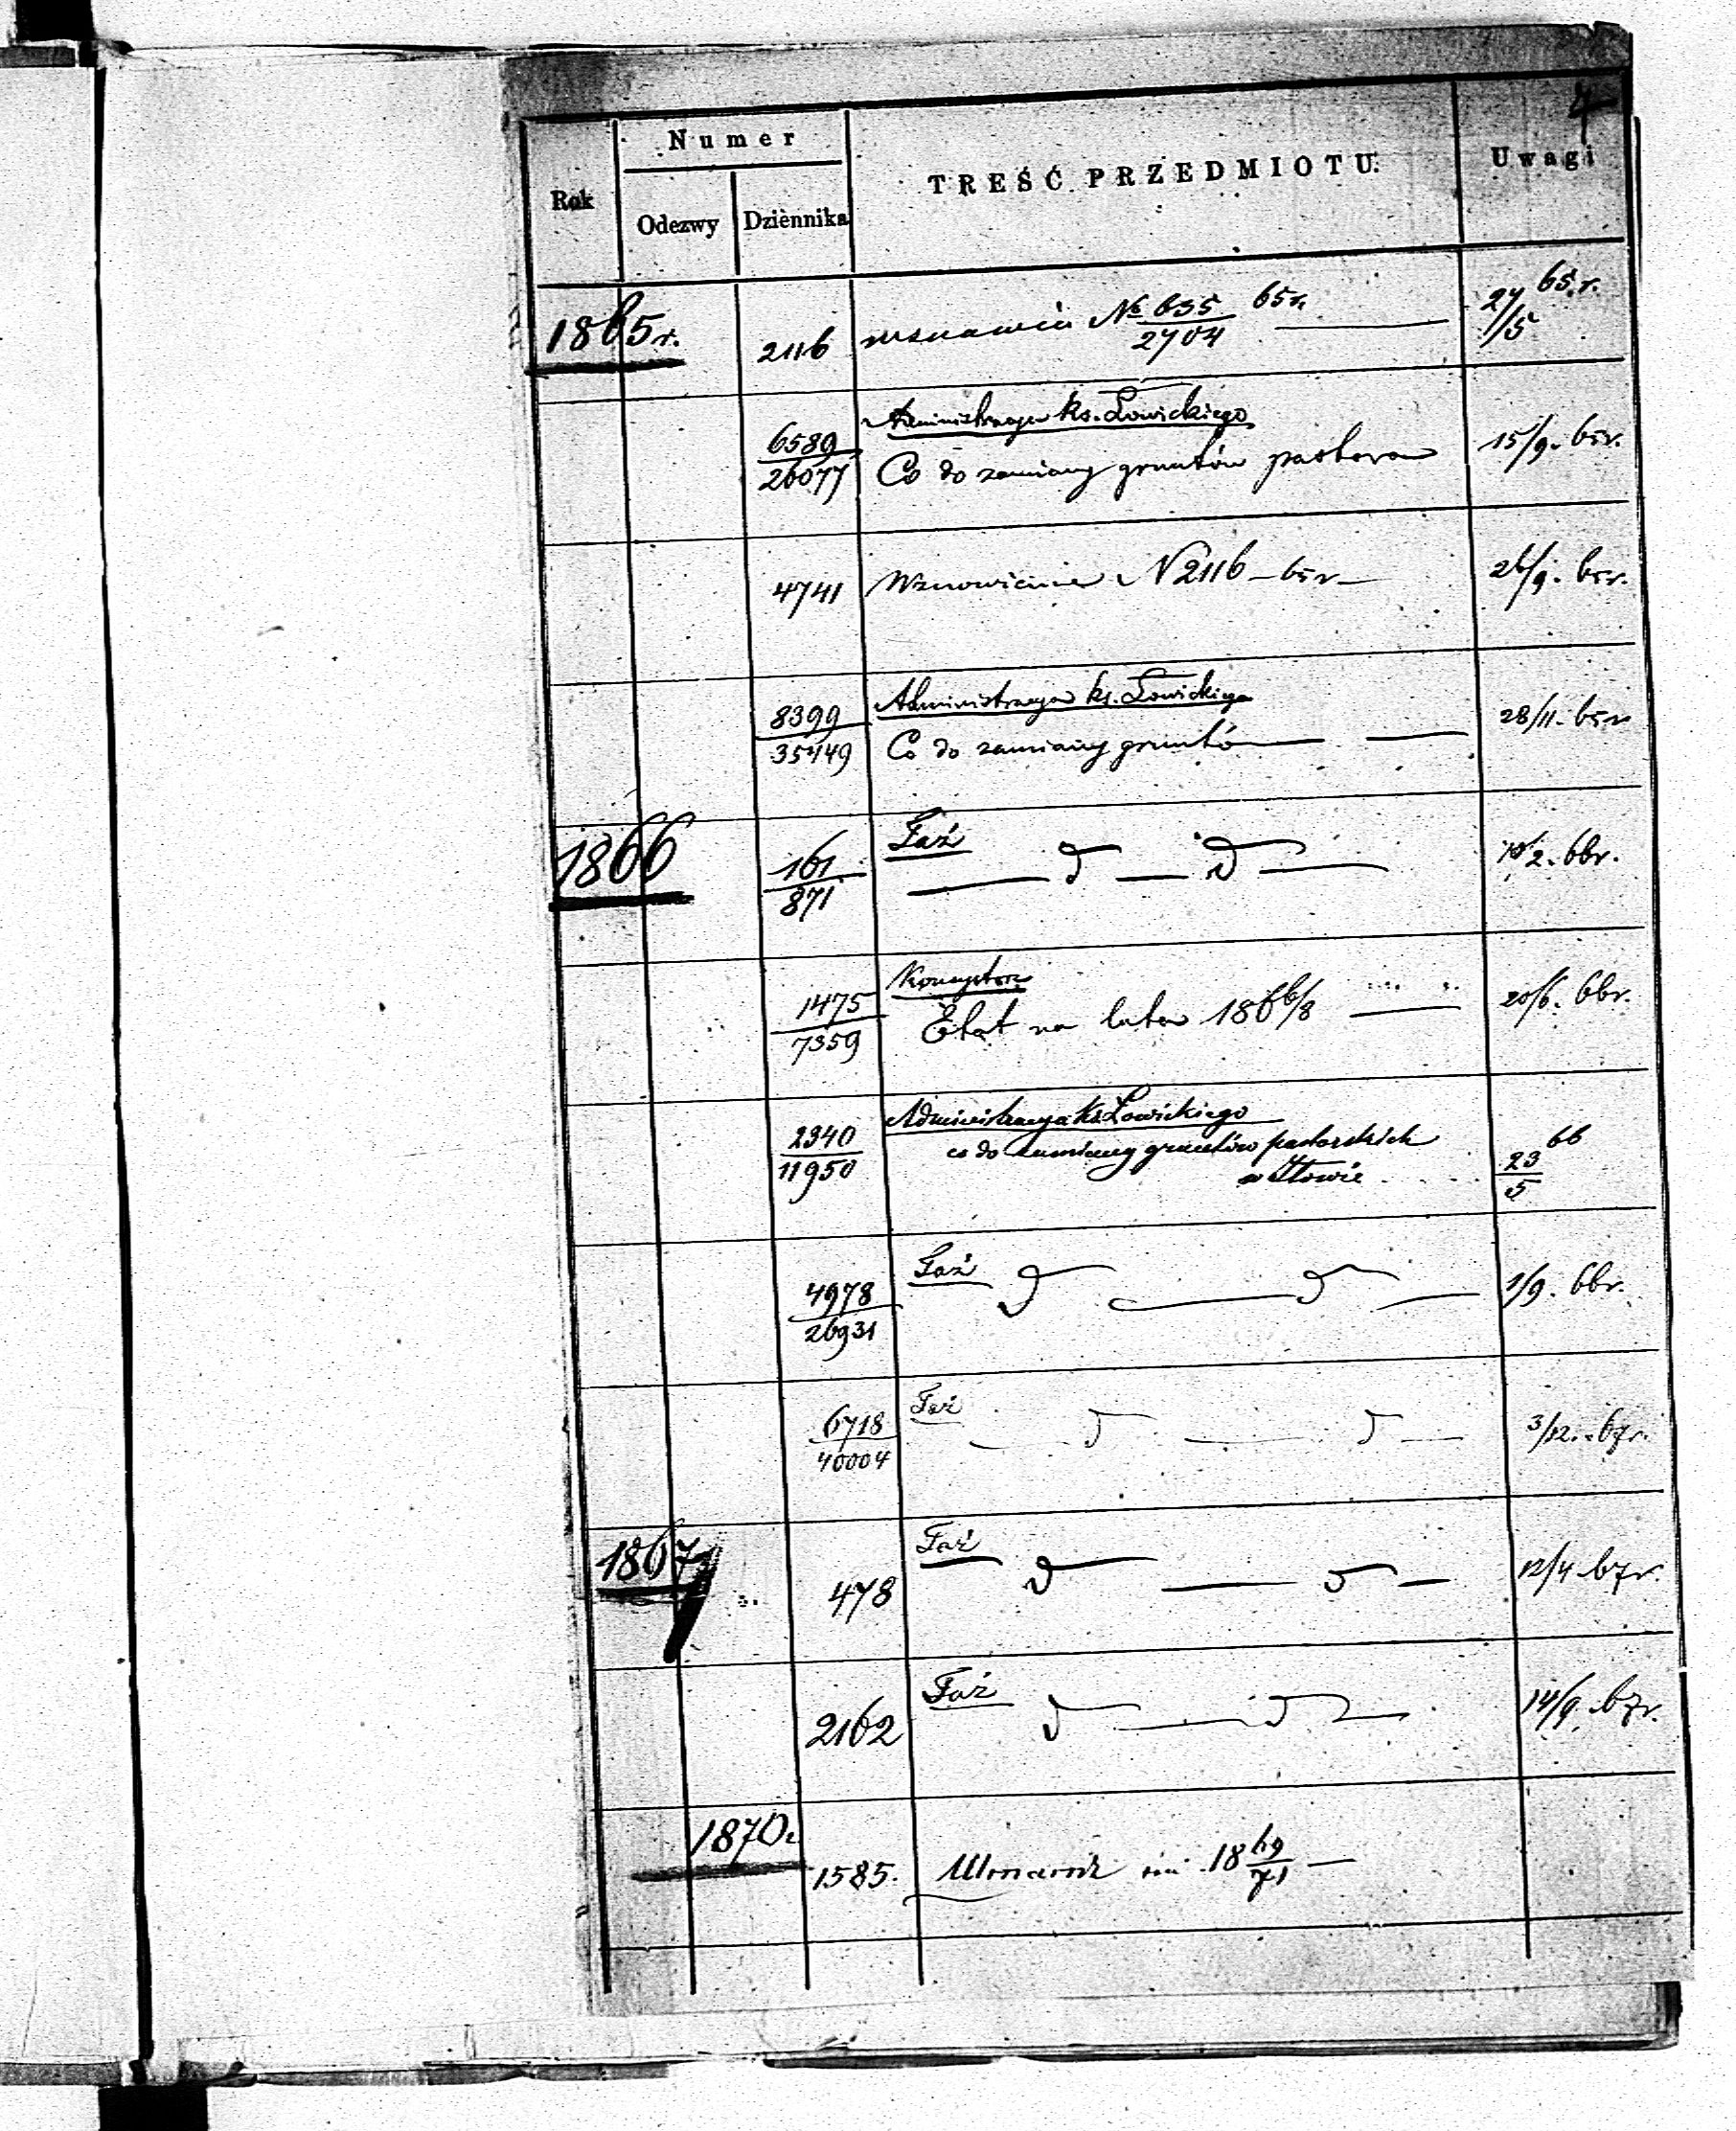 4
Numer
Rok Odezwy Dziennika TREŚĆ PRZEDMIOTU. Uwagi
1865r. 2116 wznawia № 635/2704 65r. 27/5 65.r.
6589/26077 Administracya ks. Łowickiego 15/9. 65r.
Co do zamiany gruntów pastora
4741 Wznowienie N 2116 – 65r – 26/9. 65r.
8399/35449 Administracya ks. Łowickiego 28/11. 65r
Co do zamiany gruntów
1866 161/871 Taż d d /2. 66r.
1475/7359 Konsystorz
Etat na lata 1866/8 20/6. 66r.
2340/11950 Administracya Ks. Łowickiego
co do zamiany gruntów pastorskich 23/5 66
w Iłowie
4978/26931 Taż d d 1/9. 66r.
6718/40004 Taż d d 3/12. 67r.
1867 478 Taż d d 12/4 67r.
2162 Taż d d 14/9. 67r.
1870r. 1585. 18 69/71